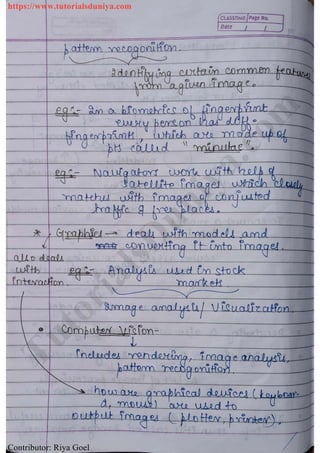 https://www.tutorialsduniya.com
CLASSTIME Page No.
Date / /
pattern recogonition.
Identifying certain common features
from a given image.
eg:- In a biometrics of fingerprint
every person has diff.
fingerprints, which are made up of
pts called "minutae".
eg:- Navigators work with help of
satellite images which closely
matches with images of conjusted
traffic & free places.
* Graphics → deals with models and
converting it into images.
also deals
with
interaction.
eg:- Analysis used in stock
markets
Image analysis/ Visualization.
• Computer Vision-
includes rendering, image analysis,
pattern recogonition.
how are graphical devices (keyboar-
d, mouse) are used to
output images (plotter, printer).
Contributor: Riya Goel